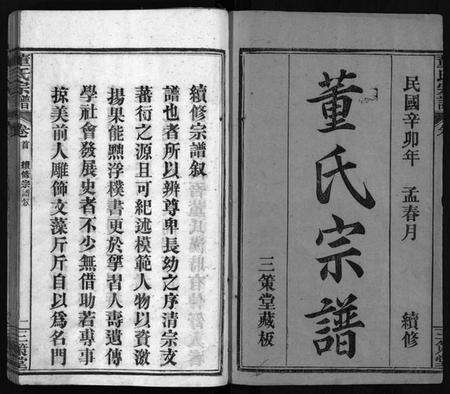 民國辛卯年 孟春月 續修
董氏宗譜
三策堂藏板
續修宗譜叙
譜也者所以辨尊卑長幼之序清宗支
蕃衍之源且可紀述模範人物以資激
揚果能黜浮樸書更於擘習人壽遺傳
學社會發展史者不少無借助若專事
掠美前人雕飾文藻斤斤自以爲名門
董氏宗譜
卷首 續修宗譜叙
三策堂